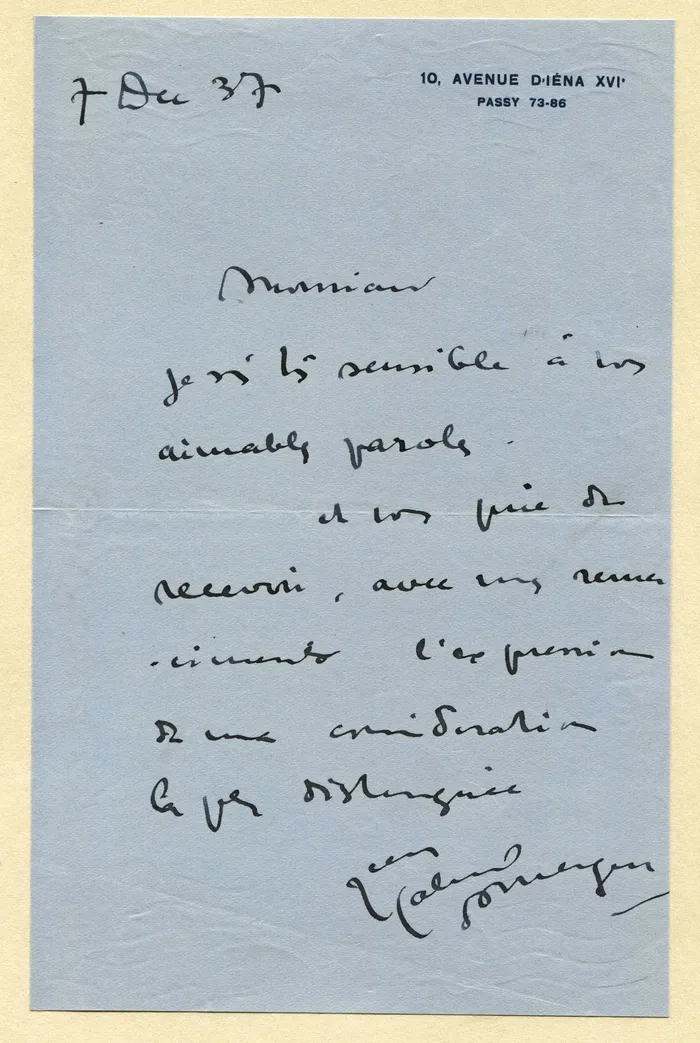 7 Dec 37
10, AVENUE D'IÉNA XVIᵉ
PASSY 73-86
Monsieur
Je suis très sensible à vos
aimables paroles.
et vous prie de
recevoir, avec mes remer
-ciments l'expression
de ma considération
la plus distinguée
Jean Gabriel Domergue